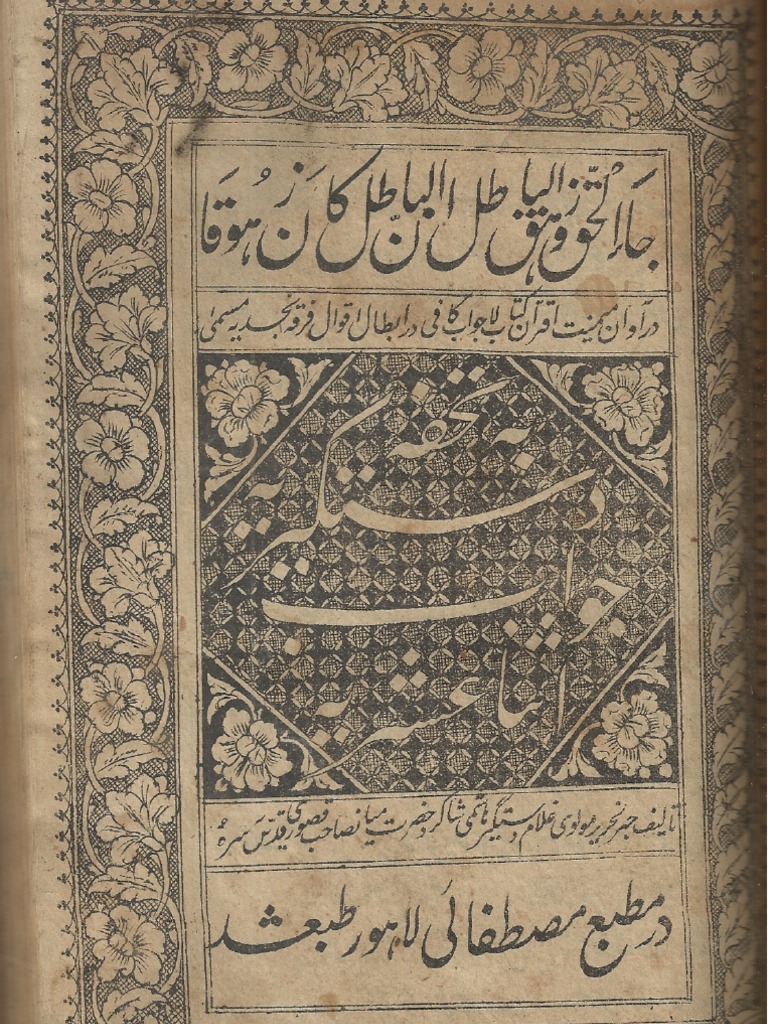 جاء الحق و زهق الباطل ان الباطل کان زهوقا
در آوان میمنت اقران کتاب لاجواب کافی در ابطال اقوال فرقه نجدیه مسمی
به تحفه
دستگیریه
جواب
اثنا عشریه
تالیف حبر نحریر مولوی غلام دستگیر هاشمی شاگرد حضرت میانصاحب قصوری قدس سره
در مطبع مصطفائی لاهور طبع شد